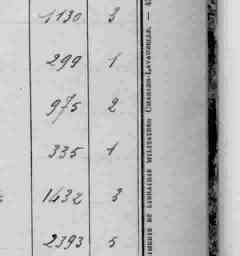 1130 3
299 1
975 2
335 1
1432 3
2393 5
IMERIE ET LIBRAIRIE MILITAIRES CHARLES-LAVAUZELLE. —